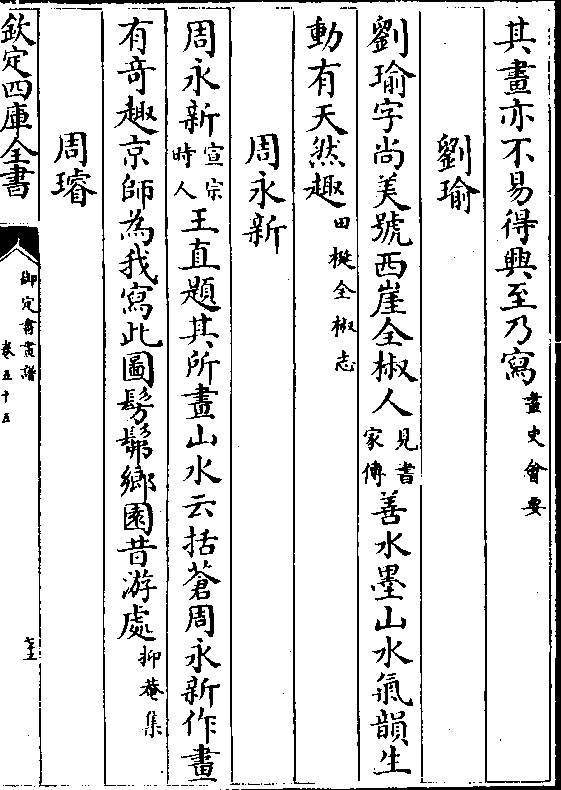 其畫亦不易得興至乃寫畫史會要
劉瑜
劉瑜字尚美號西崖全椒人見書家傳善水墨山水氣韻生
動有天然趣田樾全椒志
周永新
周永新宣宗時人王直題其所畫山水云括蒼周永新作畫
有奇趣京師為我寫此圖髣髴鄉園昔游處抑菴集
周璿
欽定四庫全書
御定書畫譜
卷五十五